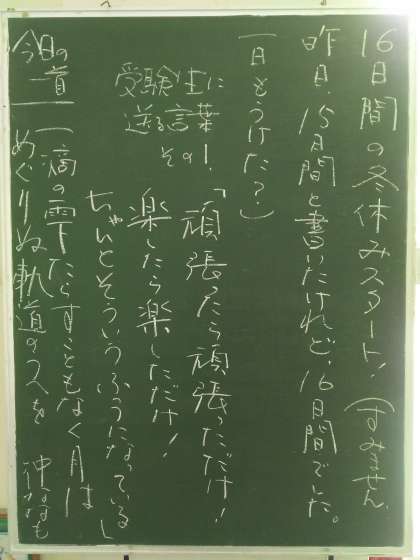 16日間の冬休みスタート！（すみません、
昨日、15日間と書いたけれど、16日間でした。
一日もうけた？）
受験生に
送る言葉
その1.
「頑張ったら頑張っただけ！
楽したら楽しただけ！
ちゃんとそういうふうになっている」
今日の
一首
一滴の雫たらすこともなく月は
めぐりぬ軌道の入を